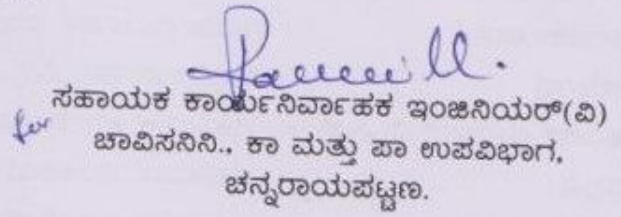 ಸಹಾಯಕ ಕಾರ್ಯನಿರ್ವಾಹಕ ಇಂಜಿನಿಯರ್(ವಿ)
for ಚಾವಿಸನಿನಿ., ಕಾ ಮತ್ತು ಪಾ ಉಪವಿಭಾಗ,
ಚನ್ನರಾಯಪಟ್ಟಣ.